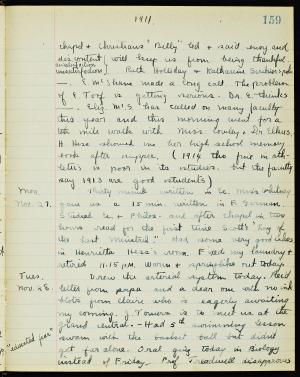 1911.
159
chapel & Christians "Billy" led & said envy and
discontent (will keep us from being thankful.
— Ruth Holliday & Katharine
—. E. McShane made a long call. The problem
of E. Toof is getting serious. Dr. E. thinks
—. Eliz. McS. has called on many faculty
this year and this morning went for a
mile walk with Miss Cowley & Dr. Ellers.
H. Hess showed me her high school memory
book after supper. (1914 the fine in ath-
letics is poor in its studies. but the faculty
say 1913 are good students)
Mon. Thirty minute written in Ec. Miss
Nov. 27. gave us a 15 min. written in F. German.
Studied Ec. & Philos. and after chapel in two
hours read for the first time Scott's "Lay of
the Last Minstrel." Had some very good
in Henrietta Hess's room. F and my laundry &
retired 11.15 P.M. Warm & springlike out today.
Tues. Drew the arterial system today. Rec'd
Nov. 28. letter from papa and a dear one with no ink
blots from Claire who is eagerly awaiting
my coming. J. Towers is to meet us at the
Grand Central. – Had 5th swimming lesson
"educated fear" swam with the basket ball but didn't
get far alone. Oral quiz today in Biology
instead of Friday. Prof. Treadwell disapproves